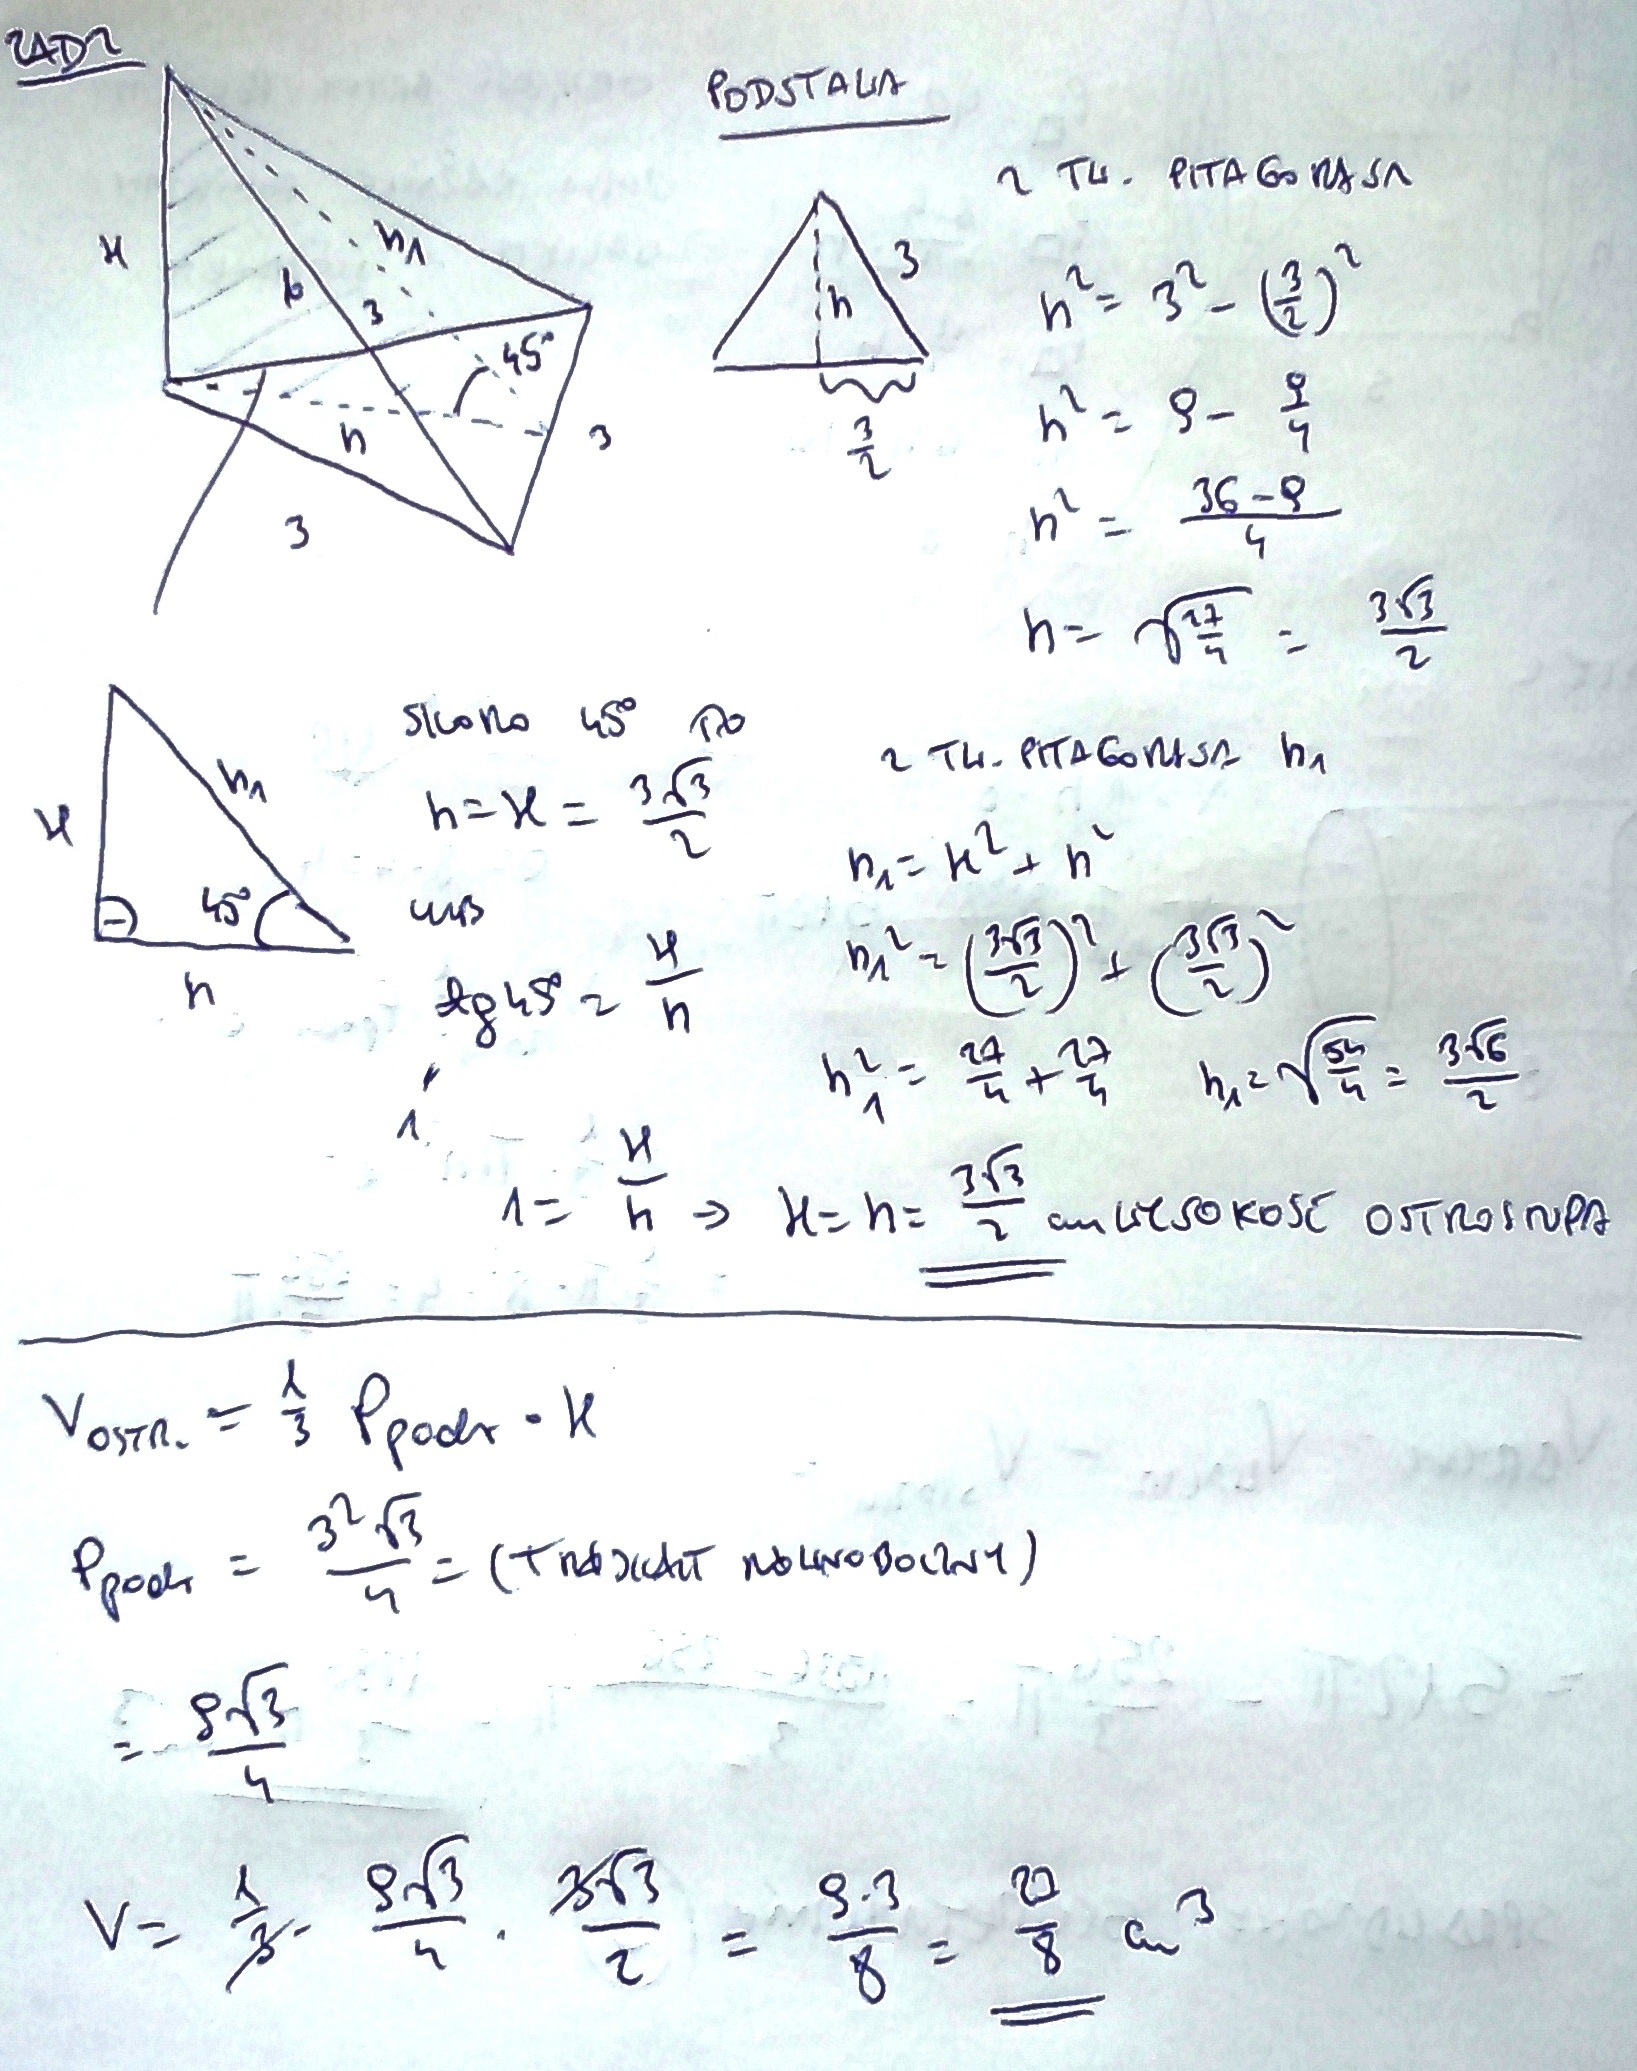 ZAD2
PODSTAWA
Z TW. PITAGORASA
H
h₁
b
3
45°
h
3
3
h
3
3/2
h² = 3² - (3/2)²
h² = 9 - 9/4
h² = (36-9)/4
h = √(27/4) = 3√3/2
H
h₁
45°
h
SKORO 45° TO
h = H = 3√3/2
LUB
tg 45° = H/h
1
1 = H/h → H = h = 3√3/2 cm WYSOKOŚĆ OSTROSŁUPA
Z TW. PITAGORASA h₁
h₁ = H² + h²
h₁² = (3√3/2)² + (3√3/2)²
h₁² = 27/4 + 27/4 h₁ = √(54/4) = 3√6/2
V OSTR. = 1/3 Ppodst · H
Ppodst = 3²√3/4 = (TRÓJKĄT RÓWNOBOCZNY)
= 9√3/4
V = 1/3 · 9√3/4 · 3√3/2 = 9·3/8 = 27/8 cm³